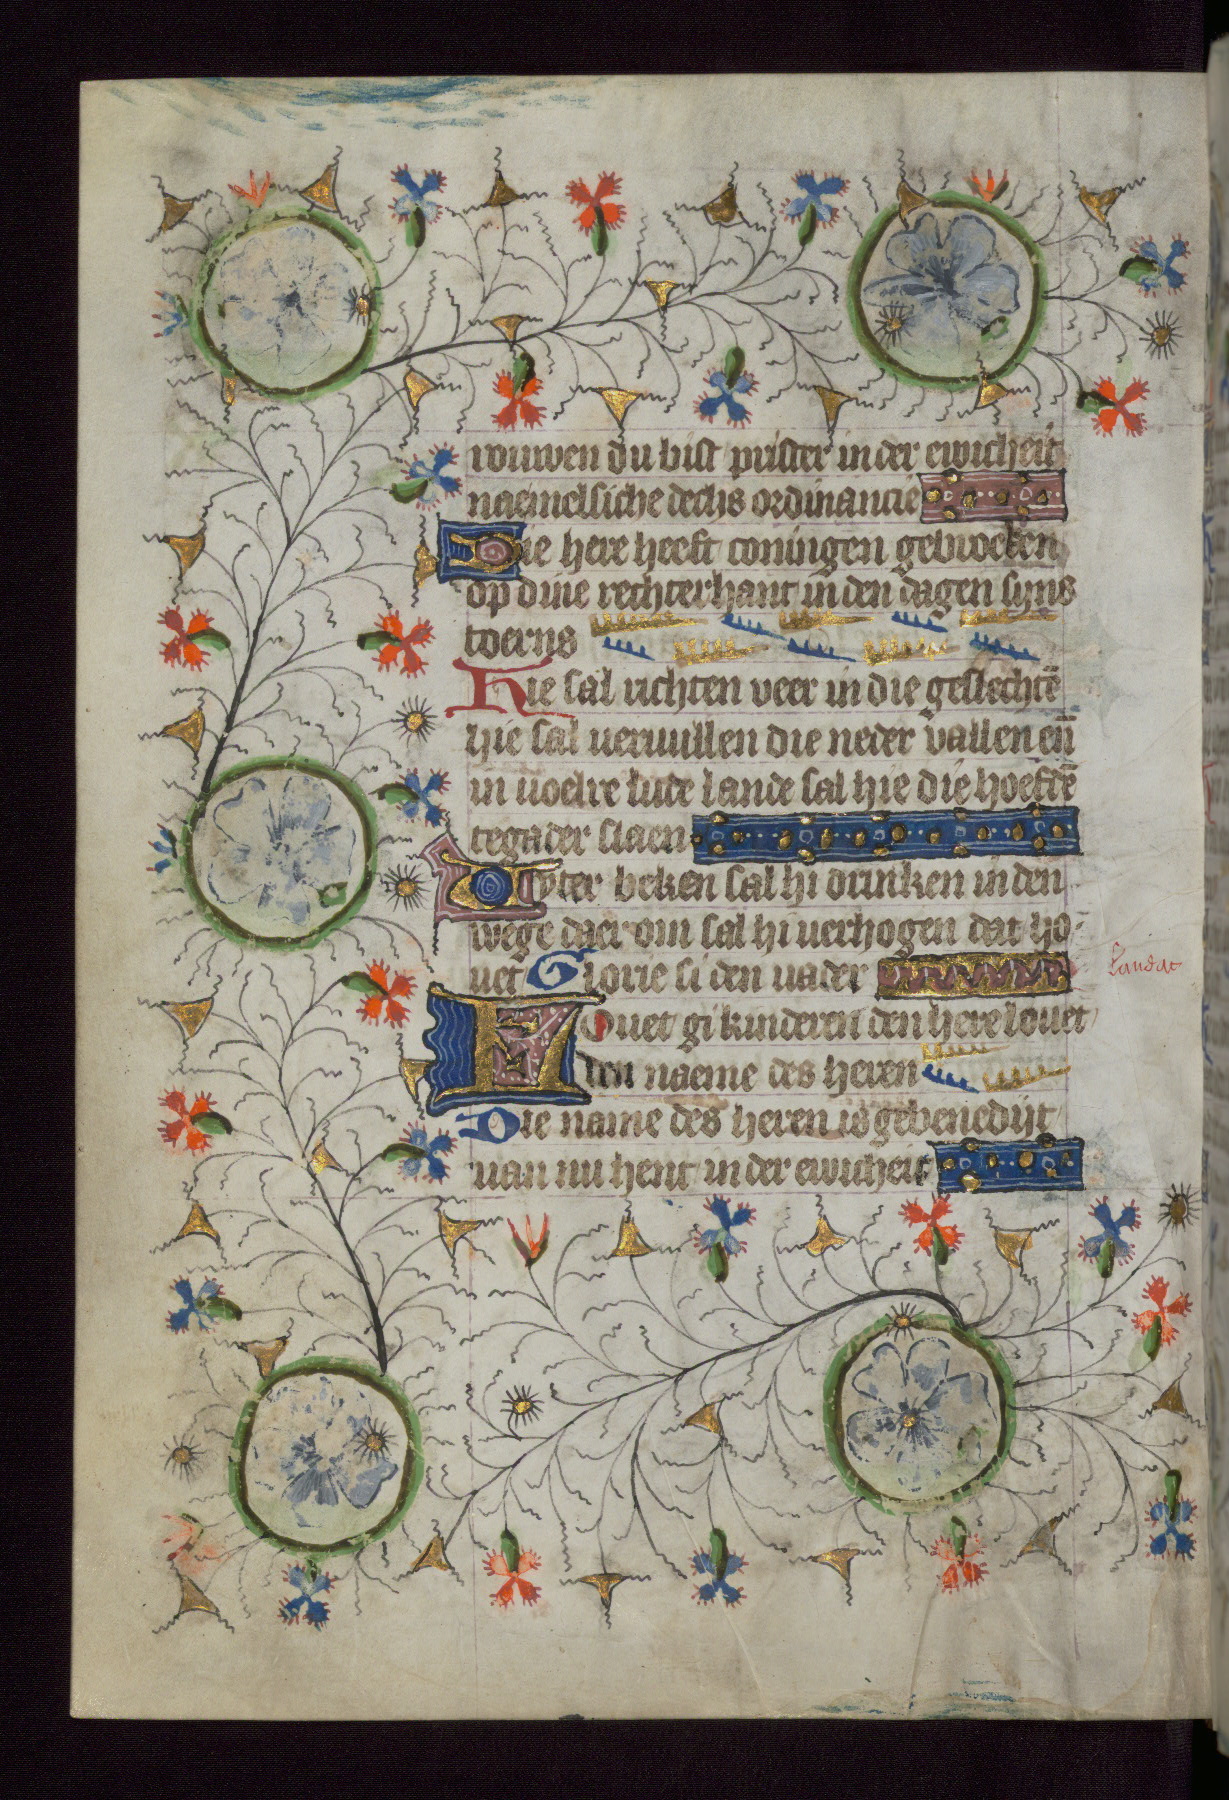 rouwen du bist prister in der ewicheit
naemelliche dechs ordinancie
Die here heeft coningen gebroeken
op dine rechterhant in den dagen syns
toerns
Hie sal richten veer in die geslechtē
hie sal vervullen die neder vallen eñ
in voelre lude lande sal hie die hoeftē
tegader slaen
Uyter beken sal hi drinken in den
wege daer om sal hi verhogen dat ho
vet Glorie si den vader
Louet gi kinderen den here louet
den naeme des heren
Die name des heren is gebenedijt
van nu hent in der ewicheit
Laudat